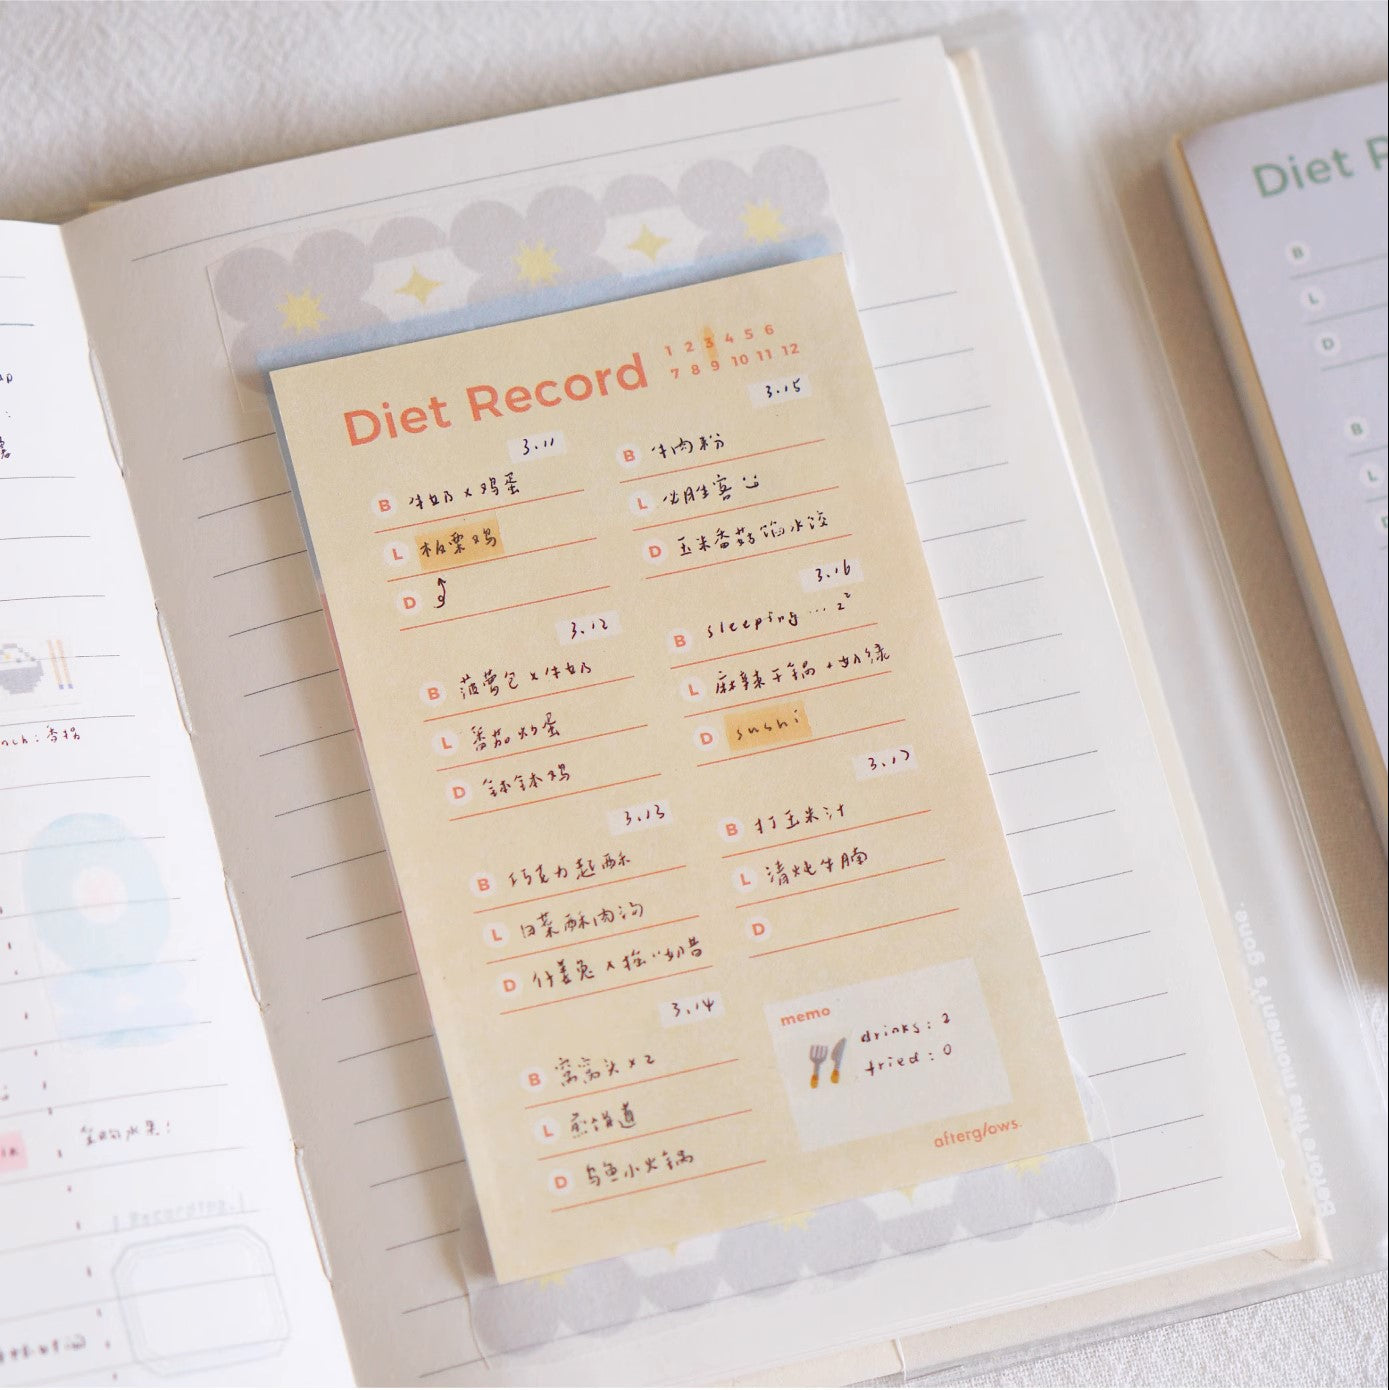 Diet Record
1 2 3 4 5 6
7 8 9 10 11 12
3.11
B 牛奶 x 鸡蛋
L 板栗鸡
D
3.12
B 菠萝包 x 牛奶
L 番茄炒蛋
D 钵钵鸡
3.13
B 巧克力
L 白菜酥肉汤
D 仔姜兔 x
3.14
B 窝窝头 x 2
L
D 乌鱼小火锅
3.15
B 牛肉粉
L 必胜客
D 玉米番菇馅水饺
3.16
B sleeping ... z²
L 麻辣干锅 + 奶绿
D sushi
3.17
B 打玉米汁
L 清炖牛腩
D
memo
drinks: 2
fried: 0
afterglows.
Diet R
B
L
D
B
L
Before the moment's gone.
Recording.